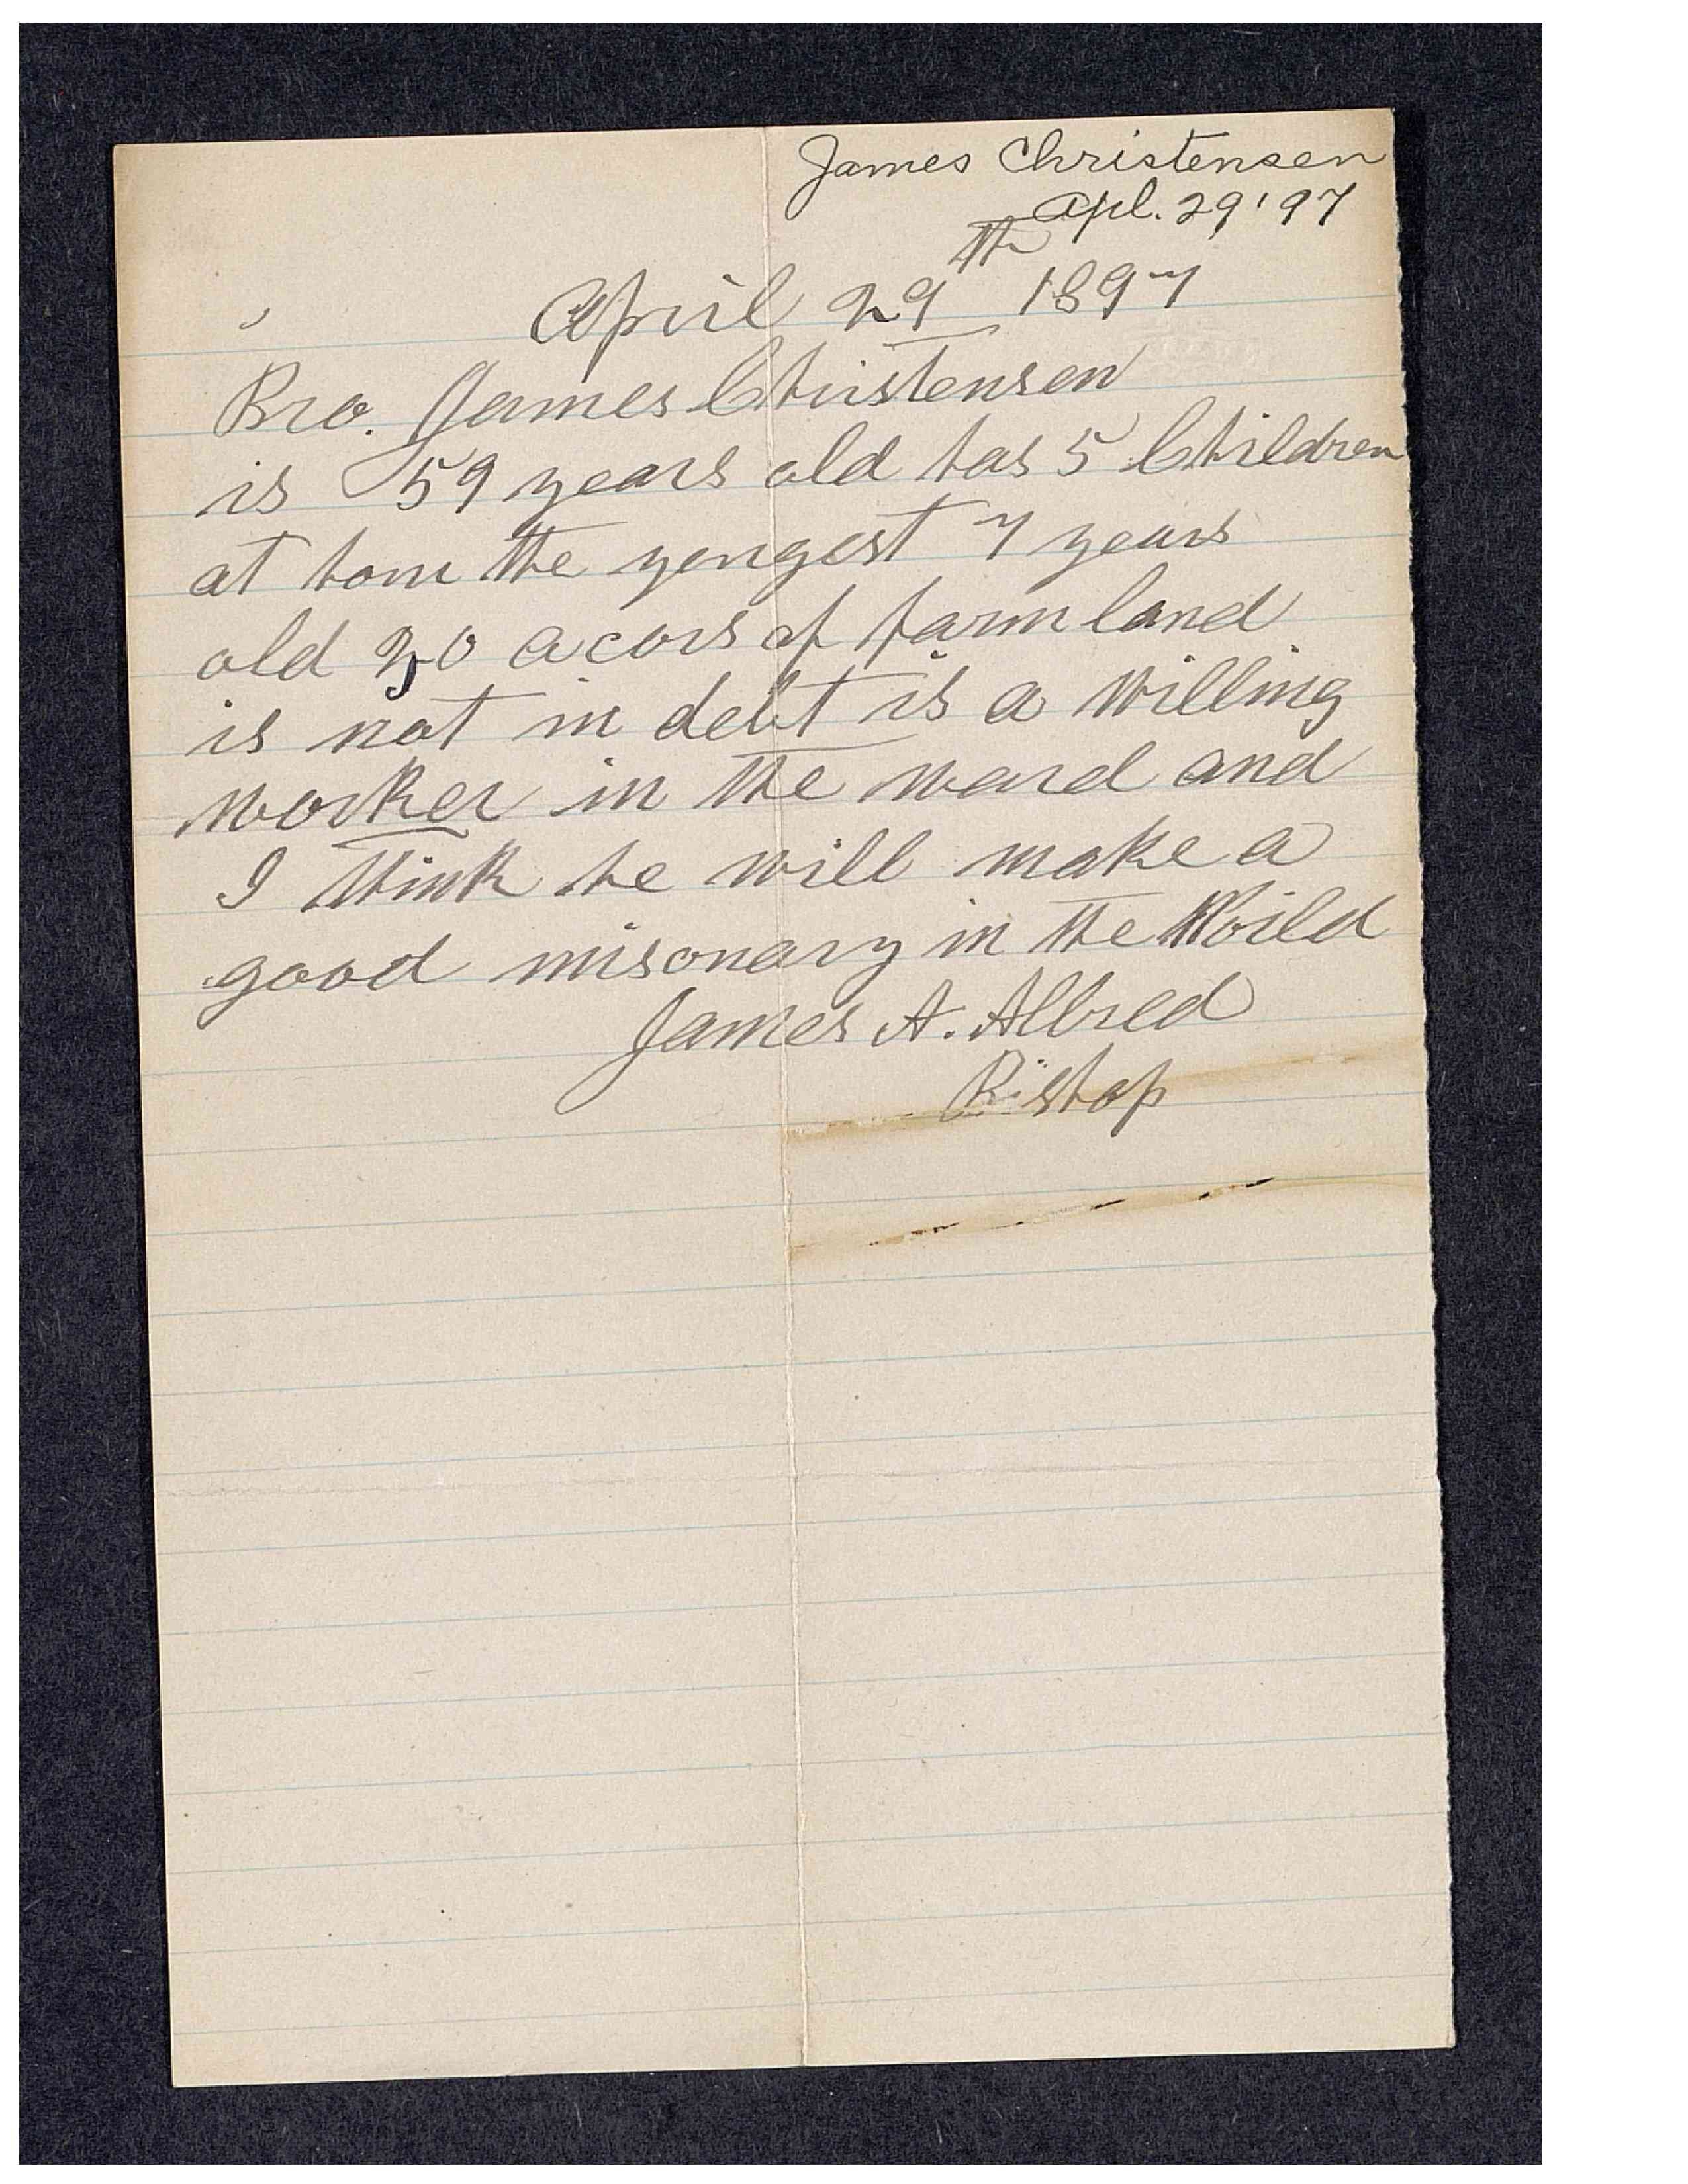 James Christensen
Apl. 29 '97
April 29th 1897
Bro. James Christensen
is 59 years old has 5 Children
at hom the yongest 7 years
old 30 acors of farm land
is not in debt is a willing
worker in the ward and
I think he will make a
good misonary in the World
James A. Allred
Bishop